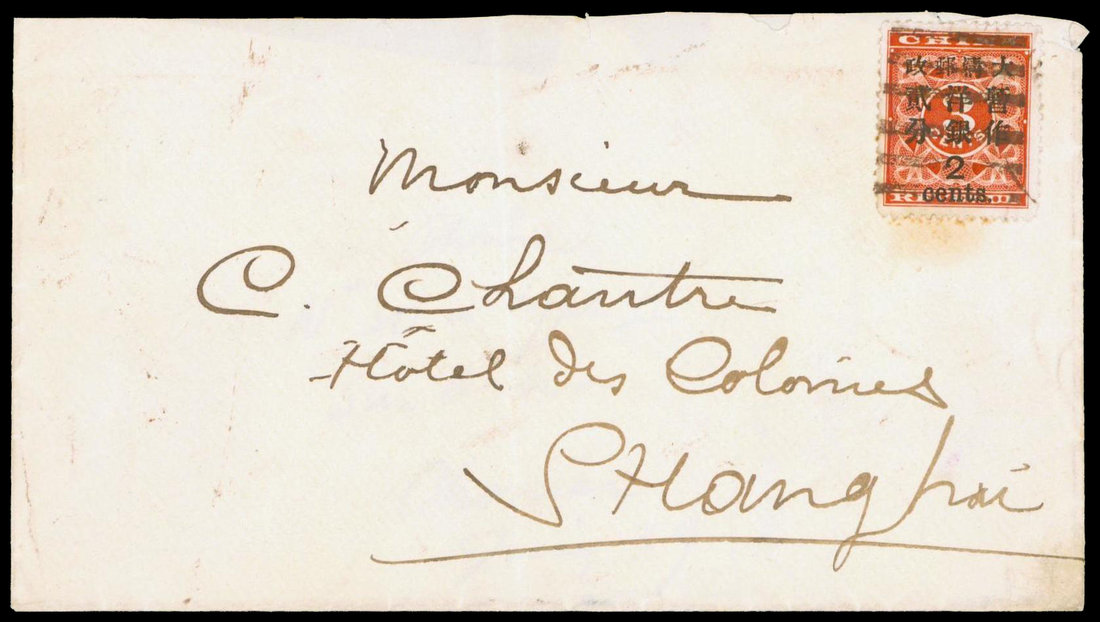 大清郵政
暫作
洋銀
貳分
3
2
cents.
Monsieur
C. Chantre
Hôtel des Colonies
SHanghai